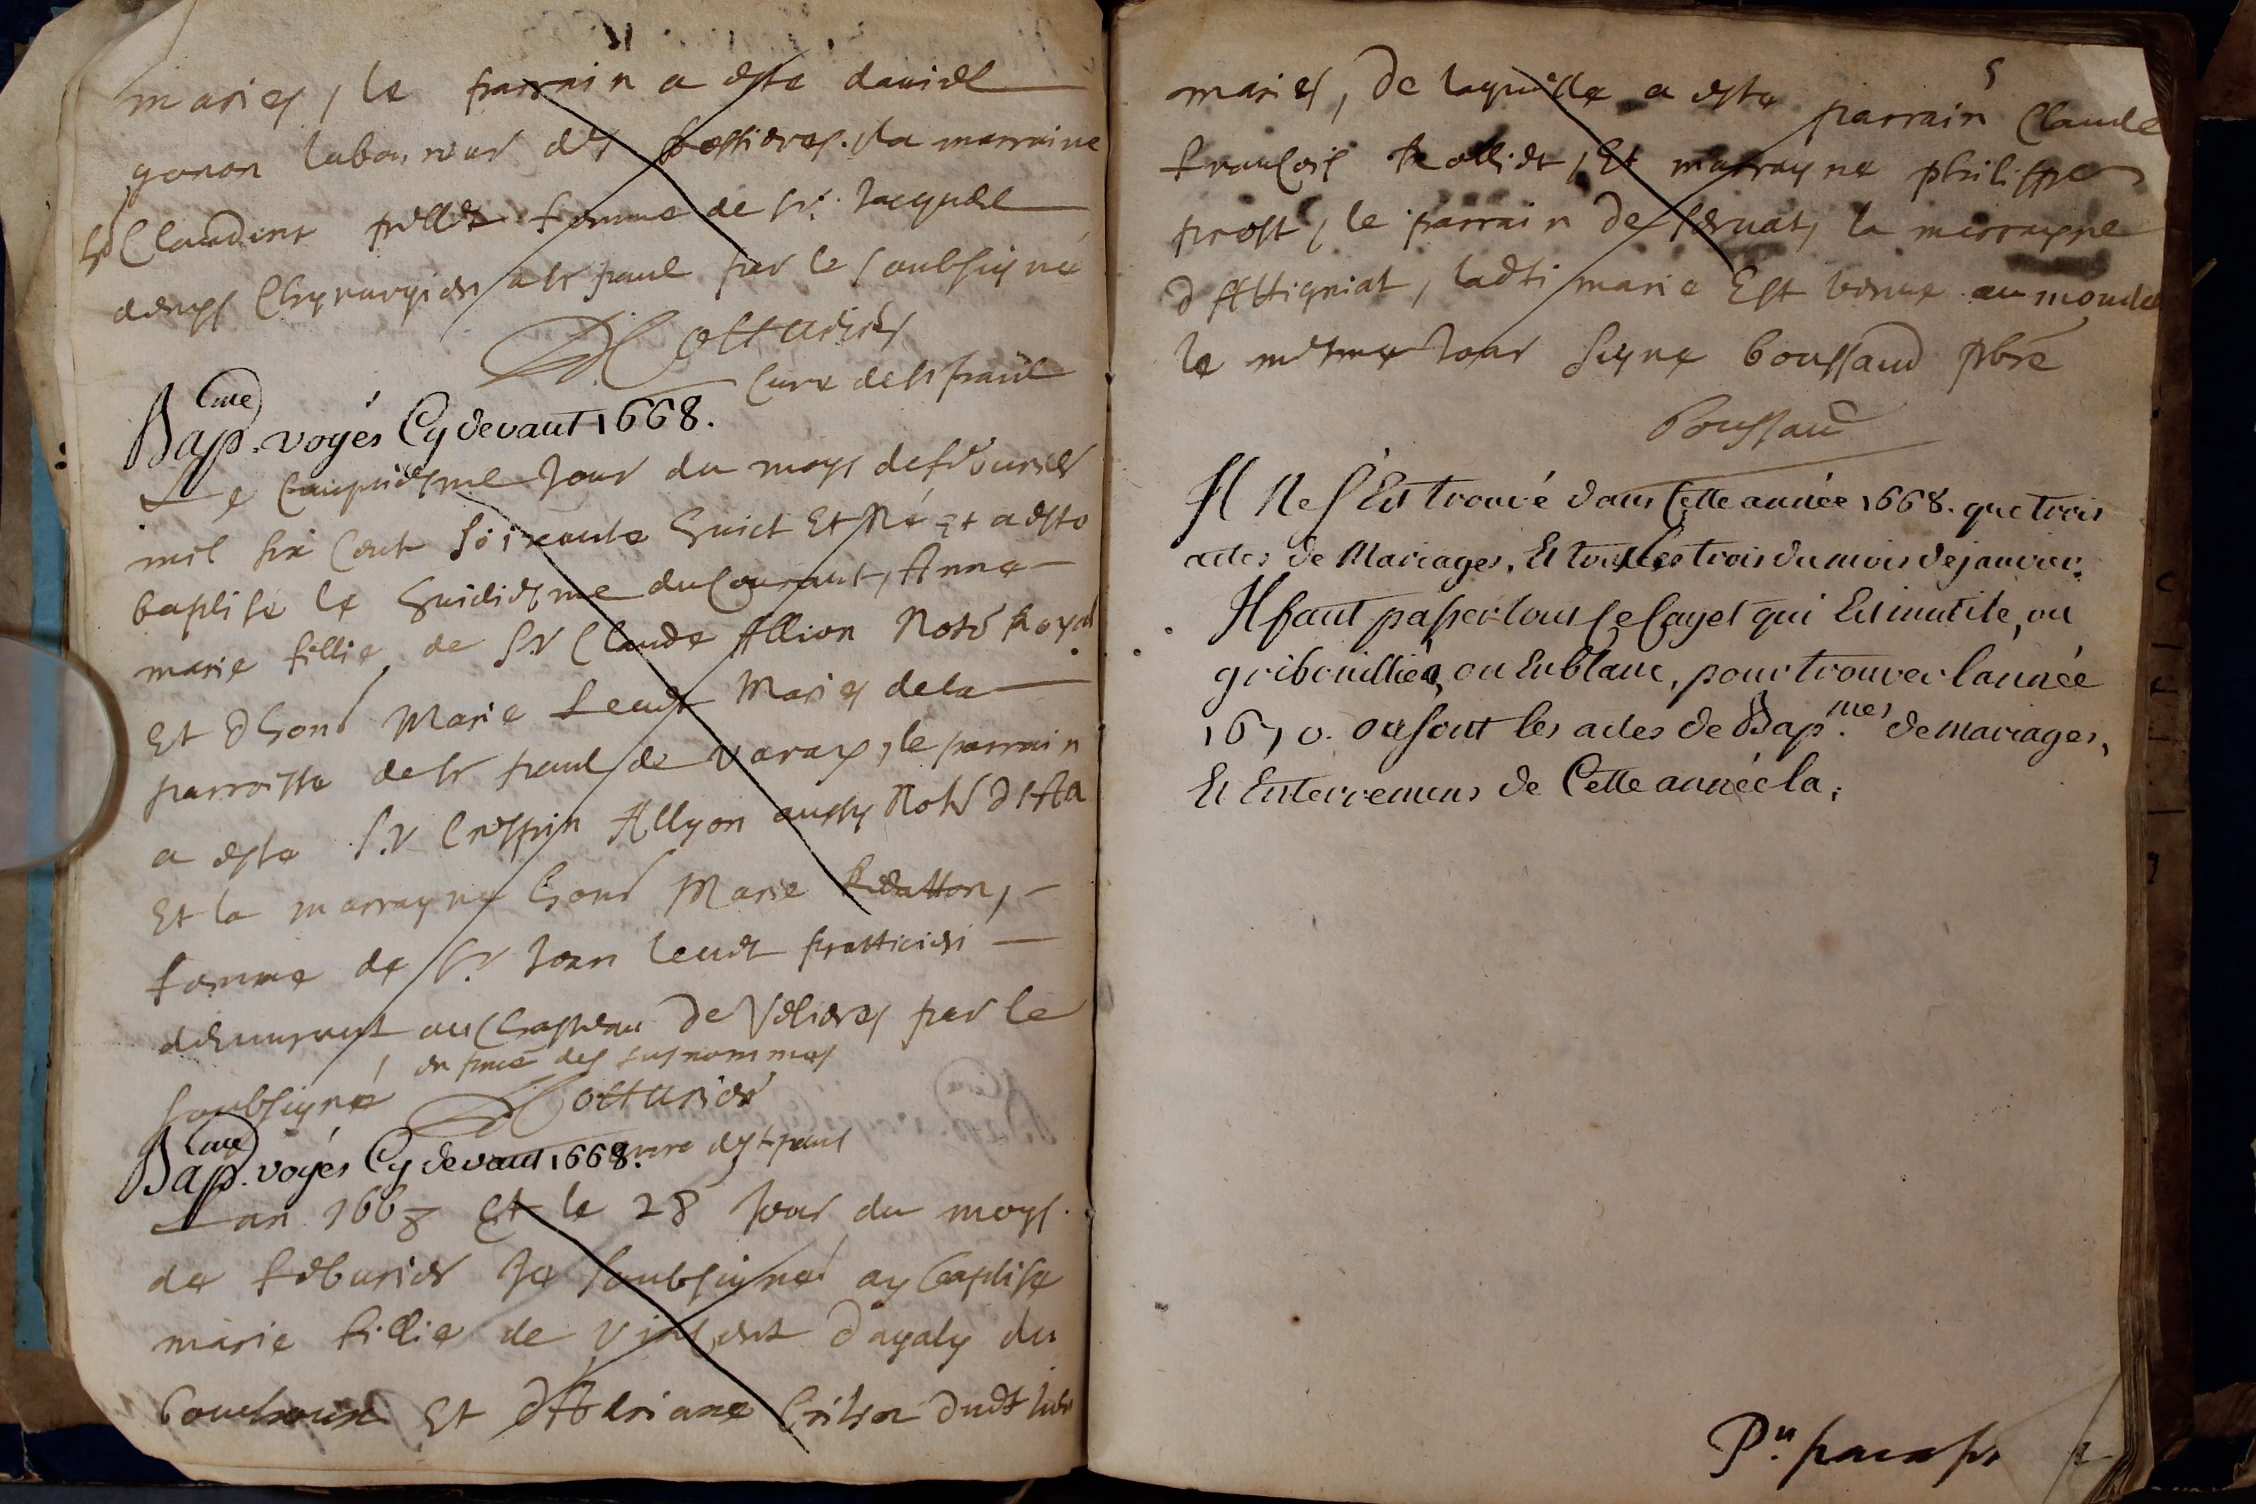 maries, le parrain a este daniel
gonon laboureur des la marraine
Claudine pillet femme de Sr. Jacques
Chyrurgien a St paul par le soubsigné
Cottarier
Cure de St paul
Bap.me voyés Cy devant 1668.
Le cinquiesme Jour du moys de feburier
mil six Cent soixante huict Et Né Et a esto
baptisé le huictiesme du Courant, Anne
marie fillie de Sr Claude Allion Not.e Royal
Et dhon.e Marie Maries de la
parroisse de St paul de varax, le parrain
a este Sr Crespin Allyon aussy Not.e
Et la marrayne hon.e Marie
femme de Sr Jean pratticien
demeurant au Chasteau de par le
soubsigné en pnce des susnommes
Cottarier
cure de St paul
Bap.me voyés Cy devant 1668.
Lan 1668 Et le 28 Jour du moys
de feburier Je soubsigné ay baptise
marie fillie de Vincent dagaly du
Et dAdriane dudt lieu
5
maries, de laquelle a este parrain Claude
francois Et marrayne philippe
prost, le parrain de servat, la marrayne
dAttigniat, ladte marie Est venue au monde
le mesme Jour signe boussaud pbre
Boussaud
Il Ne s'Est trouvé dans Cette année 1668. que trois
actes de Mariages, Et tous les trois du mois de janvier.
Il faut passer tout le Cayet qui Est inutile, ou
gribouilliéa, ou En blanc, pour trouver l'année
1670. ou sont les actes de Bap.mes de mariages,
Et Enterremens de Cette année la.
P.n paraphe